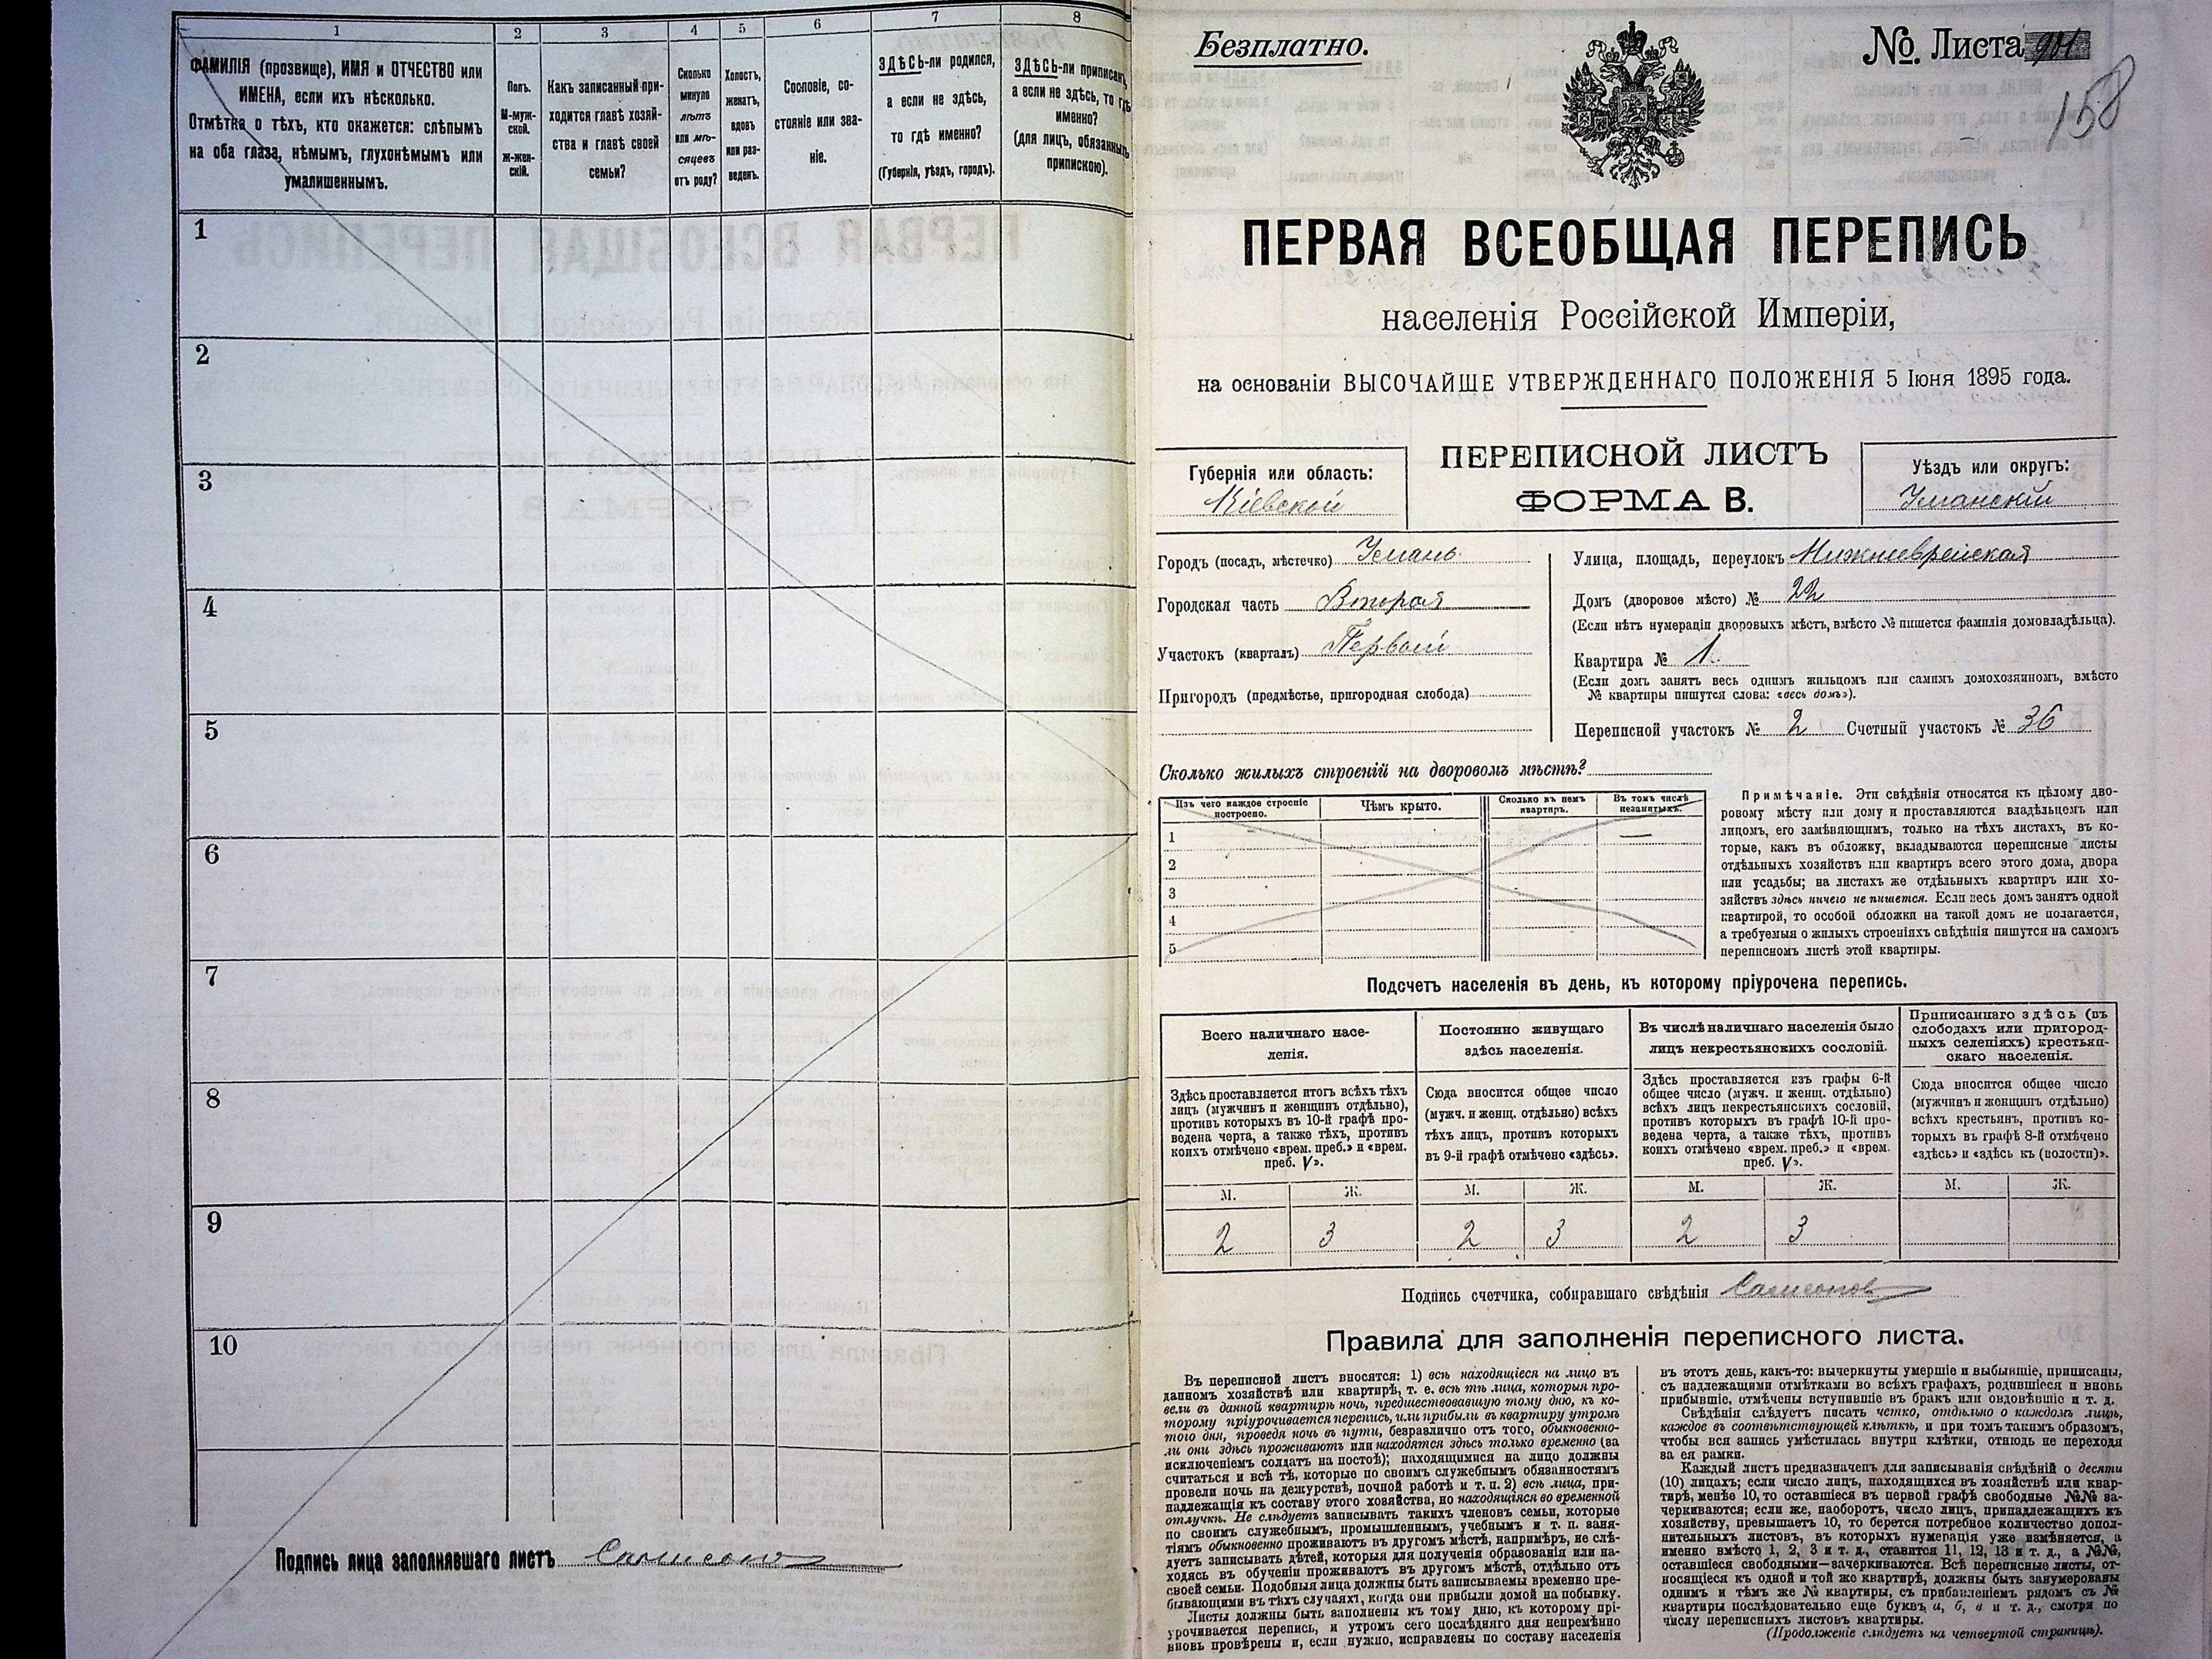 1 2 3 4 5 6 7 8
ФАМИЛІЯ (прозвище), ИМЯ и ОТЧЕСТВО или
ИМЕНА, если ихъ нѣсколько.
Отмѣтка о тѣхъ, кто окажется: слѣпымъ
на оба глаза, нѣмымъ, глухонѣмымъ или
умалишеннымъ.
Полъ.
М-муж-
ской.
ж-жен-
скій.
Какъ записанный при-
ходится главѣ хозяй-
ства и главѣ своей
семьи?
Сколько
минуло
лѣтъ
или мѣ-
сяцевъ
отъ роду?
Холостъ,
женатъ,
вдовъ
или раз-
веденъ.
Сословіе, со-
стояніе или зва-
ніе.
ЗДѢСЬ-ли родился,
а если не здѣсь,
то гдѣ именно?
(Губернія, уѣздъ, городъ).
ЗДѢСЬ-ли приписанъ,
а если не здѣсь, то гдѣ
именно?
(для лицъ, обязанныхъ
припискою).
1
2
3
4
5
6
7
8
9
10
Подпись лица заполнявшаго листъ
Безплатно.
№. Листа
158
ПЕРВАЯ ВСЕОБЩАЯ ПЕРЕПИСЬ
населенія Россійской Имперіи,
на основаніи ВЫСОЧАЙШЕ УТВЕРЖДЕННАГО ПОЛОЖЕНІЯ 5 Іюня 1895 года.
Губернія или область:
Кіевской
ПЕРЕПИСНОЙ ЛИСТЪ
ФОРМА В.
Уѣздъ или округъ:
Уманскій
Городъ (посадъ, мѣстечко) Умань
Городская часть Вторая
Участокъ (кварталъ) Первый
Пригородъ (предмѣстье, пригородная слобода)
Улица, площадь, переулокъ Нижнееврейская
Домъ (дворовое мѣсто) № 22
(Если нѣтъ нумераціи дворовыхъ мѣстъ, вмѣсто № пишется фамилія домовладѣльца).
Квартира № 1.
(Если домъ занятъ весь однимъ жильцомъ или самимъ домохозяиномъ, вмѣсто
№ квартиры пишутся слова: «весь домъ»).
Переписной участокъ № 2 Счетный участокъ № 36
Сколько жилыхъ строеній на дворовомъ мѣстѣ?
Изъ чего каждое строеніе
построено.
Чѣмъ крыто.
Сколько въ немъ
квартиръ.
Въ томъ числѣ
незанятыхъ.
1
2
3
4
5
Примѣчаніе. Эти свѣдѣнія относятся къ цѣлому дво-
ровому мѣсту или дому и проставляются владѣльцемъ или
лицомъ, его замѣняющимъ, только на тѣхъ листахъ, въ ко-
торые, какъ въ обложку, вкладываются переписные листы
отдѣльныхъ хозяйствъ или квартиръ всего этого дома, двора
или усадьбы; на листахъ же отдѣльныхъ квартиръ или хо-
зяйствъ здѣсь ничего не пишется. Если весь домъ занятъ одной
квартирой, то особой обложки на такой домъ не полагается,
а требуемыя о жилыхъ строеніяхъ свѣдѣнія пишутся на самомъ
переписномъ листѣ этой квартиры.
Подсчетъ населенія въ день, къ которому пріурочена перепись.
Всего наличнаго насе-
ленія.
Здѣсь проставляется итогъ всѣхъ тѣхъ
лицъ (мужчинъ и женщинъ отдѣльно),
противъ которыхъ въ 10-й графѣ про-
ведена черта, а также тѣхъ, противъ
коихъ отмѣчено «врем. преб.» и «врем.
преб. V».
Постоянно живущаго
здѣсь населенія.
Сюда вносится общее число
(мужч. и женщ. отдѣльно) всѣхъ
тѣхъ лицъ, противъ которыхъ
въ 9-й графѣ отмѣчено «здѣсь».
Въ числѣ наличнаго населенія было
лицъ некрестьянскихъ сословій.
Здѣсь проставляется изъ графы 6-й
общее число (мужч. и женщ. отдѣльно)
всѣхъ лицъ некрестьянскихъ сословій,
противъ которыхъ въ графѣ 10-й про-
ведена черта, а также тѣхъ, противъ
коихъ отмѣчено «врем. преб.» и «врем.
преб. V».
Приписаннаго здѣсь (въ
слободахъ или пригород-
ныхъ селеніяхъ) крестьян-
скаго населенія.
Сюда вносится общее число
(мужчинъ и женщинъ отдѣльно)
всѣхъ крестьянъ, противъ ко-
торыхъ въ графѣ 8-й отмѣчено
«здѣсь» и «здѣсь къ (волости)».
М. Ж. М. Ж. М. Ж. М. Ж.
2 3 2 3 2 3
Подпись счетчика, собиравшаго свѣдѣнія
Правила для заполненія переписного листа.
Въ переписной листъ вносятся: 1) всѣ находящіеся на лицо въ
данномъ хозяйствѣ или квартирѣ, т. е. всѣ тѣ лица, которыя про-
вели въ данной квартирѣ ночь, предшествовавшую тому дню, къ ко-
торому пріурочивается перепись, или прибыли въ квартиру утромъ
того дня, проведя ночь въ пути, безразлично отъ того, обыкновенно-
ли они здѣсь проживаютъ или находятся здѣсь только временно (за
исключеніемъ солдатъ на постоѣ); находящимися на лицо должны
считаться и всѣ тѣ, которые по своимъ служебнымъ обязанностямъ
провели ночь на дежурствѣ, ночной работѣ и т. п. 2) всѣ лица, при-
надлежащія къ составу этого хозяйства, но находящіяся во временной
отлучкѣ. Не слѣдуетъ записывать такихъ членовъ семьи, которые
по своимъ служебнымъ, промышленнымъ, учебнымъ и т. п. заня-
тіямъ обыкновенно проживаютъ въ другомъ мѣстѣ, напримѣръ, не слѣ-
дуетъ записывать дѣтей, которыя для полученія образованія или на-
ходясь въ обученіи проживаютъ въ другомъ мѣстѣ, отдѣльно отъ
своей семьи. Подобныя лица должны быть записываемы временно пре-
бывающими въ тѣхъ случаяхъ, когда они прибыли домой на побывку.
Листы должны быть заполнены къ тому дню, къ которому прі-
урочивается перепись, и утромъ сего послѣдняго дня непремѣнно
вновь провѣрены и, если нужно, исправлены по составу населенія
въ этотъ день, какъ-то: вычеркнуты умершіе и выбывшіе, приписаны,
съ надлежащими отмѣтками во всѣхъ графахъ, родившіеся и вновь
прибывшіе, отмѣчены вступившіе въ бракъ или овдовѣвшіе и т. д.
Свѣдѣнія слѣдуетъ писать четко, отдѣльно о каждомъ лицѣ,
каждое въ соотвѣтствующей клѣткѣ, и при томъ такимъ образомъ,
чтобы вся запись умѣстилась внутри клѣтки, отнюдь не переходя
за ея рамки.
Каждый листъ предназначенъ для записыванія свѣдѣній о десяти
(10) лицахъ; если число лицъ, находящихся въ хозяйствѣ или квар-
тирѣ, менѣе 10, то оставшіеся въ первой графѣ свободные №№ за-
черкиваются; если же, наоборотъ, число лицъ, принадлежащихъ къ
хозяйству, превышаетъ 10, то берется потребное количество допол-
нительныхъ листовъ, въ которыхъ нумерація уже измѣняется, а
именно вмѣсто 1, 2, 3 и т. д., ставится 11, 12, 13 и т. д., а №№,
оставшіеся свободными—зачеркиваются. Всѣ переписные листы, от-
носящіеся къ одной и той же квартирѣ, должны быть занумерованы
однимъ и тѣмъ же № квартиры, съ прибавленіемъ рядомъ съ №
квартиры послѣдовательно еще буквъ а, б, в и т. д., смотря по
числу переписныхъ листовъ квартиры.
(Продолженіе слѣдуетъ на четвертой страницѣ).